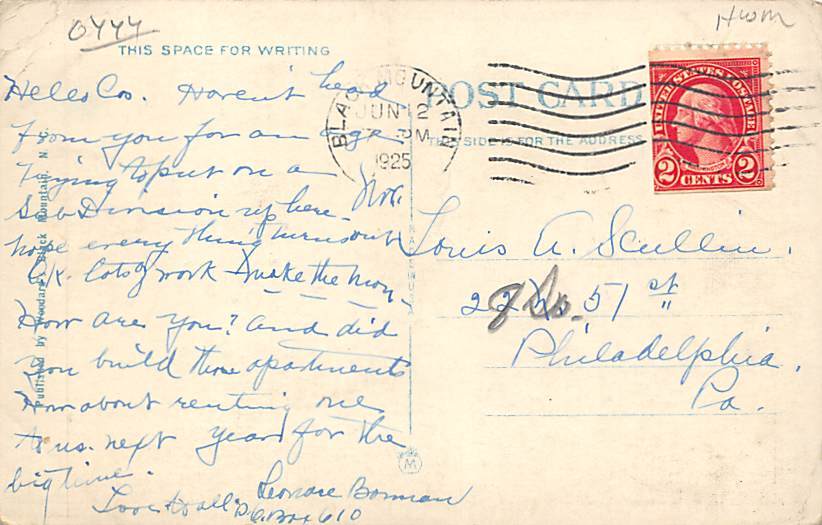 0444
Hwm
THIS SPACE FOR WRITING
POST CARD
THIS SIDE IS FOR THE ADDRESS
BLACK MOUNTAIN
JUN 12
PM
1925
UNITED STATES POSTAGE
2 CENTS 2
Hello Cos. Haven't head
from you for an age
Trying to put on a
Sub Division up here -
hope every thing turns out
O.K. lots of work to make the mon
How are you? and did
you build those apartments
How about renting one
to us. next year for the
big time.
Love to all
Leonore Bowman
P.O. Box 610
Louis A. Scullin.
51 st
Philadelphia,
Pa.
Published by Woodard, Black Mountain, N.
M